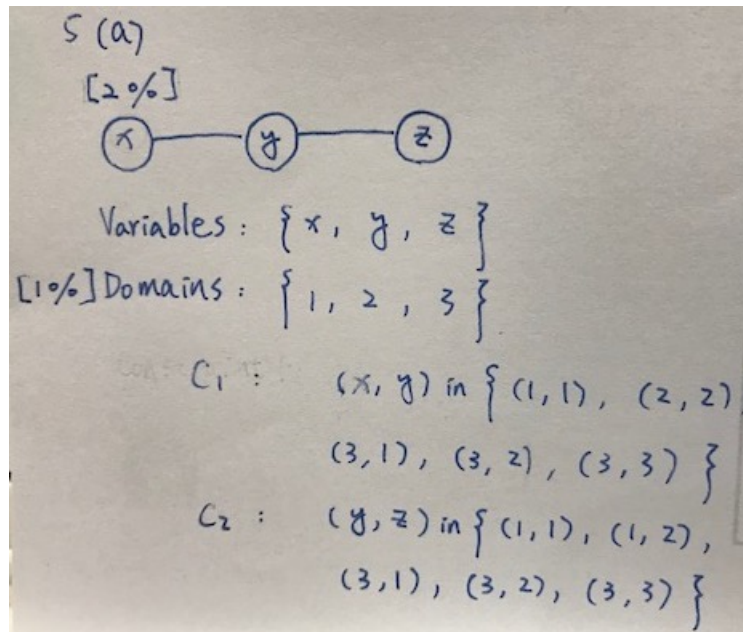 5 (a)
[2%]
x y z
Variables : { x, y, z }
[1%] Domains : { 1, 2, 3 }
C₁ : (x, y) in { (1,1), (2,2)
(3,1), (3,2), (3,3) }
C₂ : (y, z) in { (1,1), (1,2),
(3,1), (3,2), (3,3) }